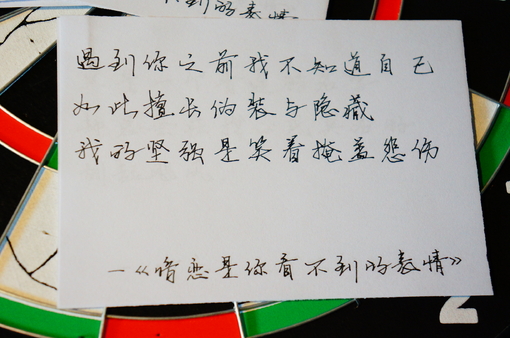 到的表情
遇到你之前我不知道自己
如此擅长伪装与隐藏
我的坚强是笑着掩盖悲伤
—《暗恋是你看不到的表情》
2